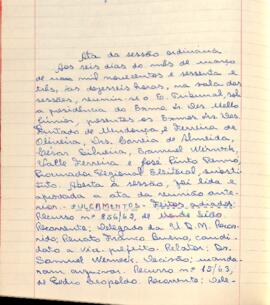 Ata da sessão ordinária
Aos seis dias do mês de março
de mil novecentos e sessenta e
três, às dezesseis horas, na sala das
sessões, reuniu-se o E. Tribunal, sob
a presidência do Exmo Sr. Des. Mello
Júnior, presentes os Exmos Srs. Des.
Furtado de Mendonça e Ferreira de
Oliveira, Drs. Correia de Almeida,
César Silveira, Samuel Werneck,
Valle Ferreira e José Pinto Renno,
Procurador Regional Eleitoral, substi-
tuto. Aberta a sessão, foi lida e
aprovada a ata da reunião ante-
rior. JULGAMENTOS - Feitos adiados:
Recurso nº 856/62, de Monte Sião.
Recorrente: Delegado da U.D.N. Recor-
rido, Renato Franco Bueno, candi-
dato a vice-prefeito. Relator, Dr.
Samuel Werneck. Decisão: man-
daram arquivar. Recurso nº 15/63,
de Pedro Leopoldo. Recorrente: Dele-